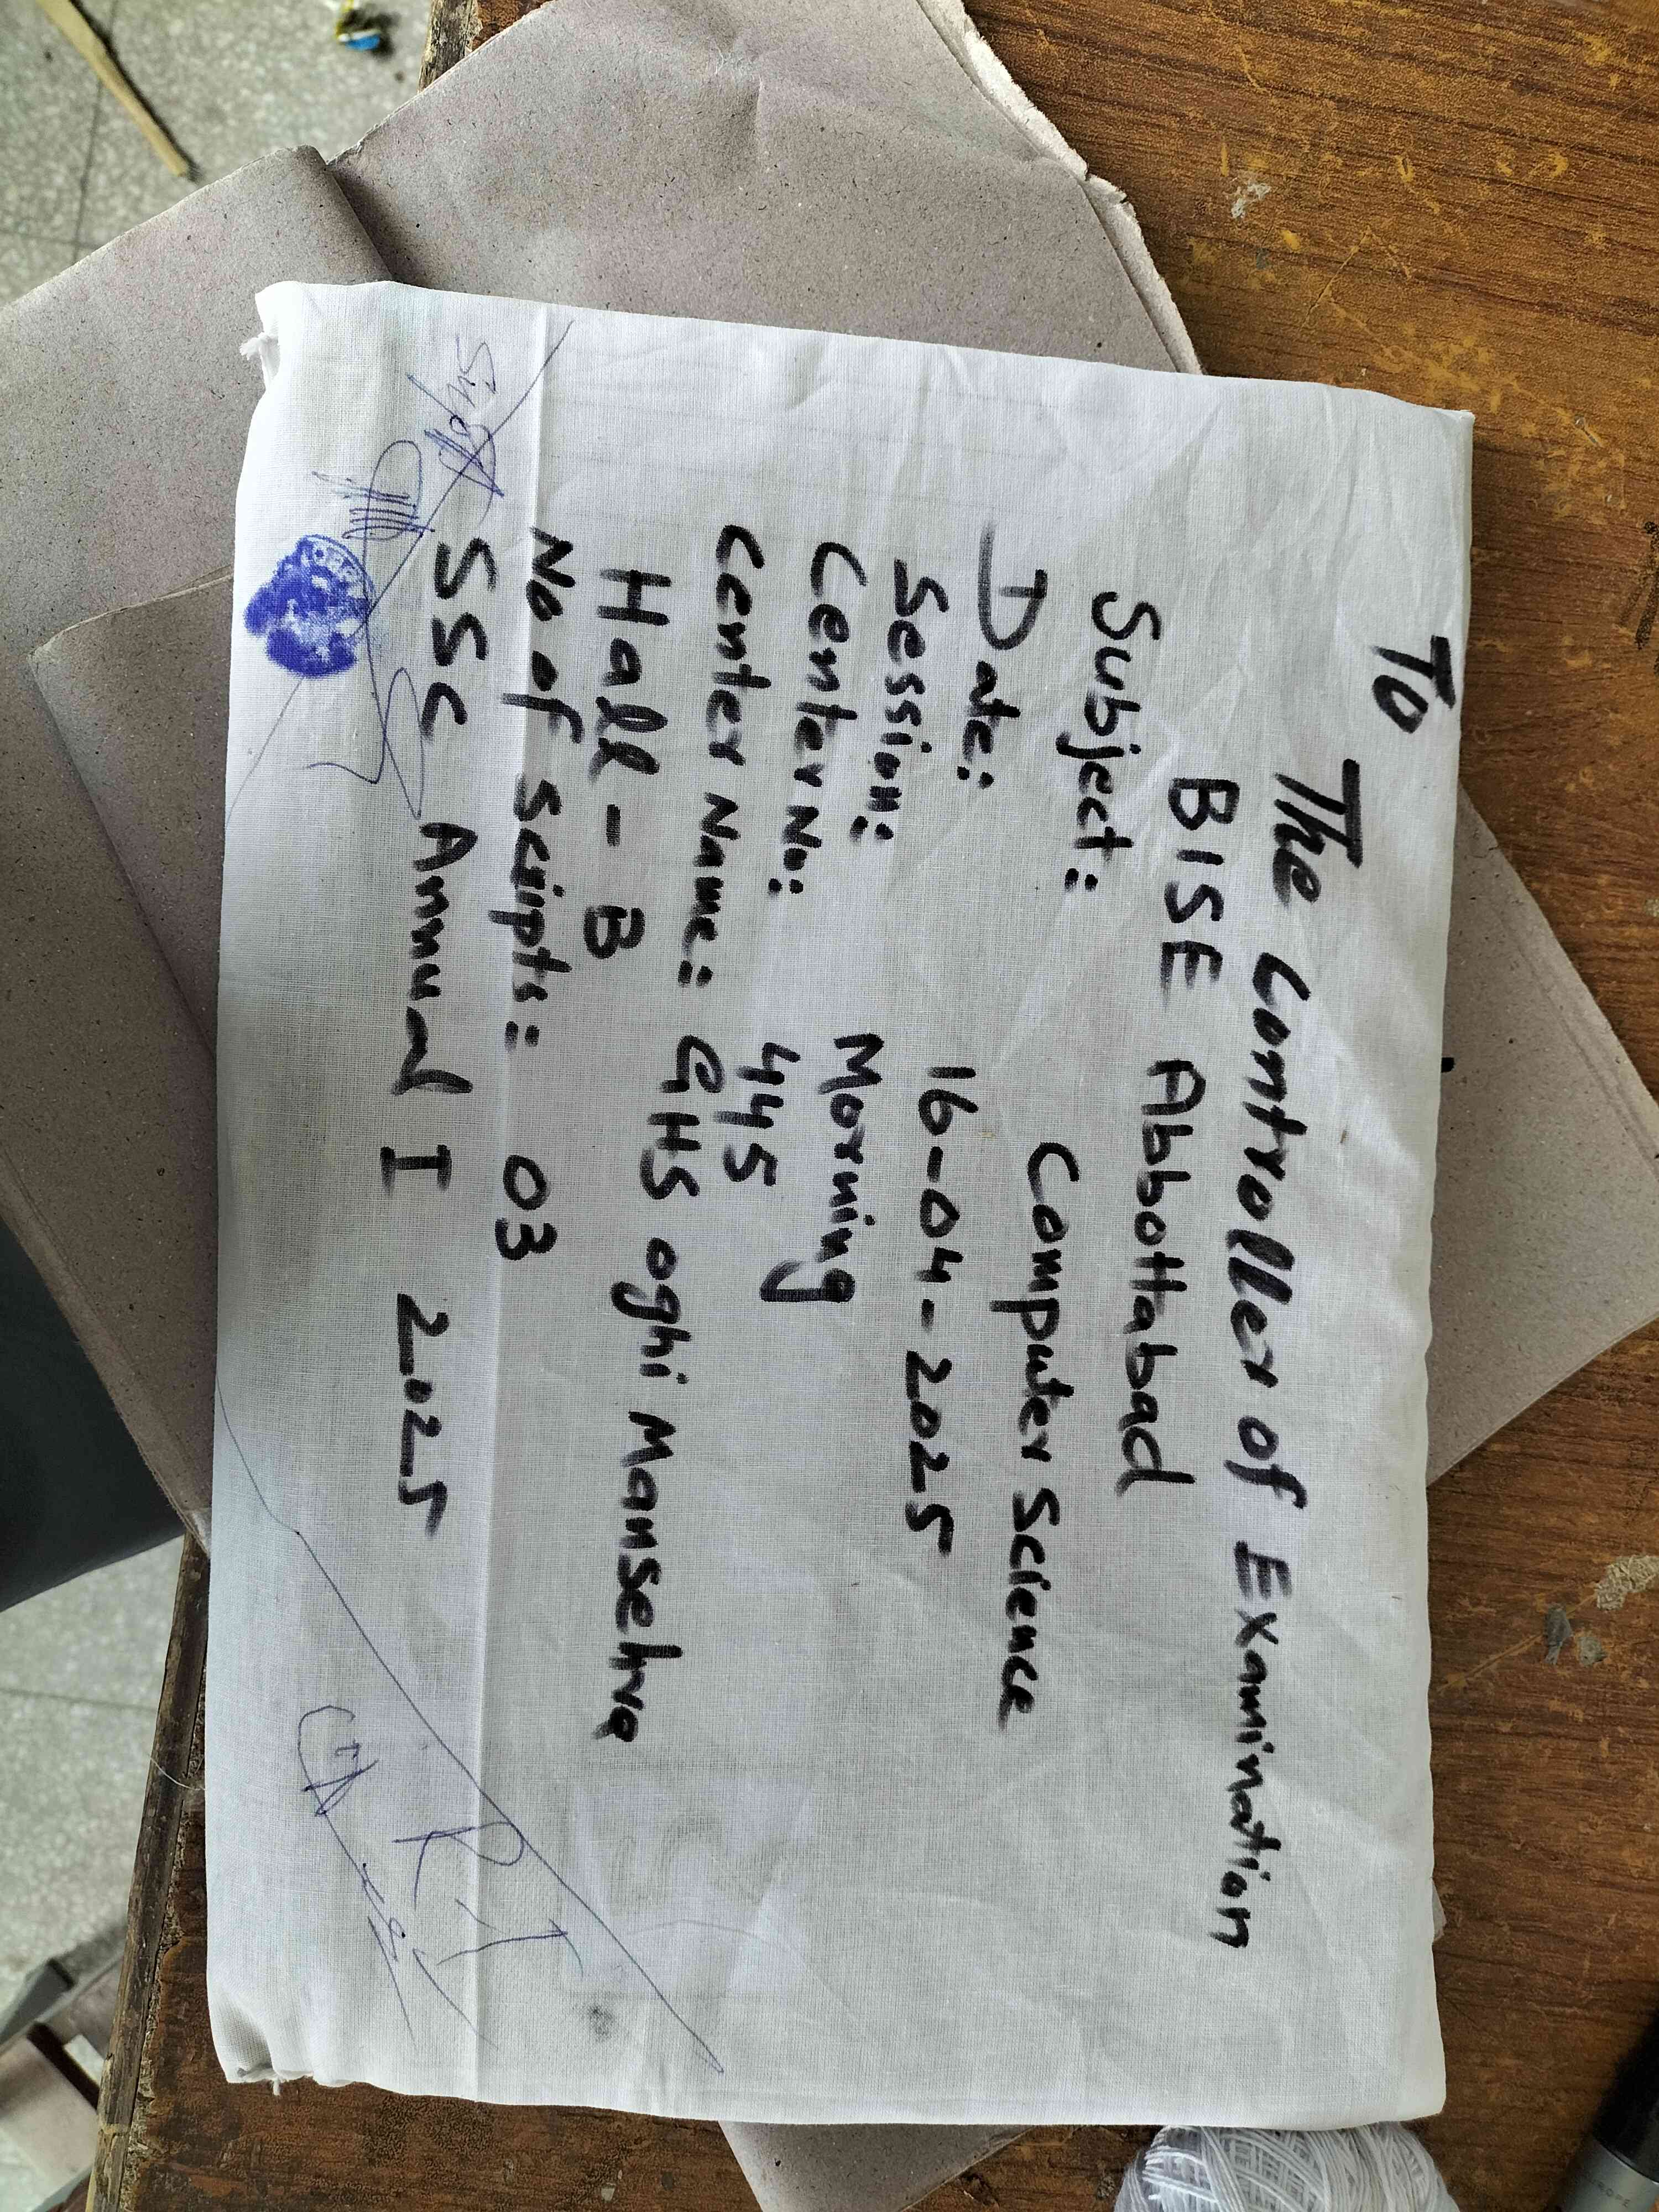 To
The Controller of Examination
BISE Abbottabad
Subject: Computer Science
Date: 16-04-2025
Session: Morning
Center No: 445
Center Name: GHS oghi Mansehra
Hall - B
No of Scripts: 03
SSC Annual I 2025